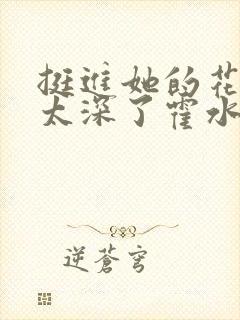 挺进她的花
太深了霍水
逆苍穹